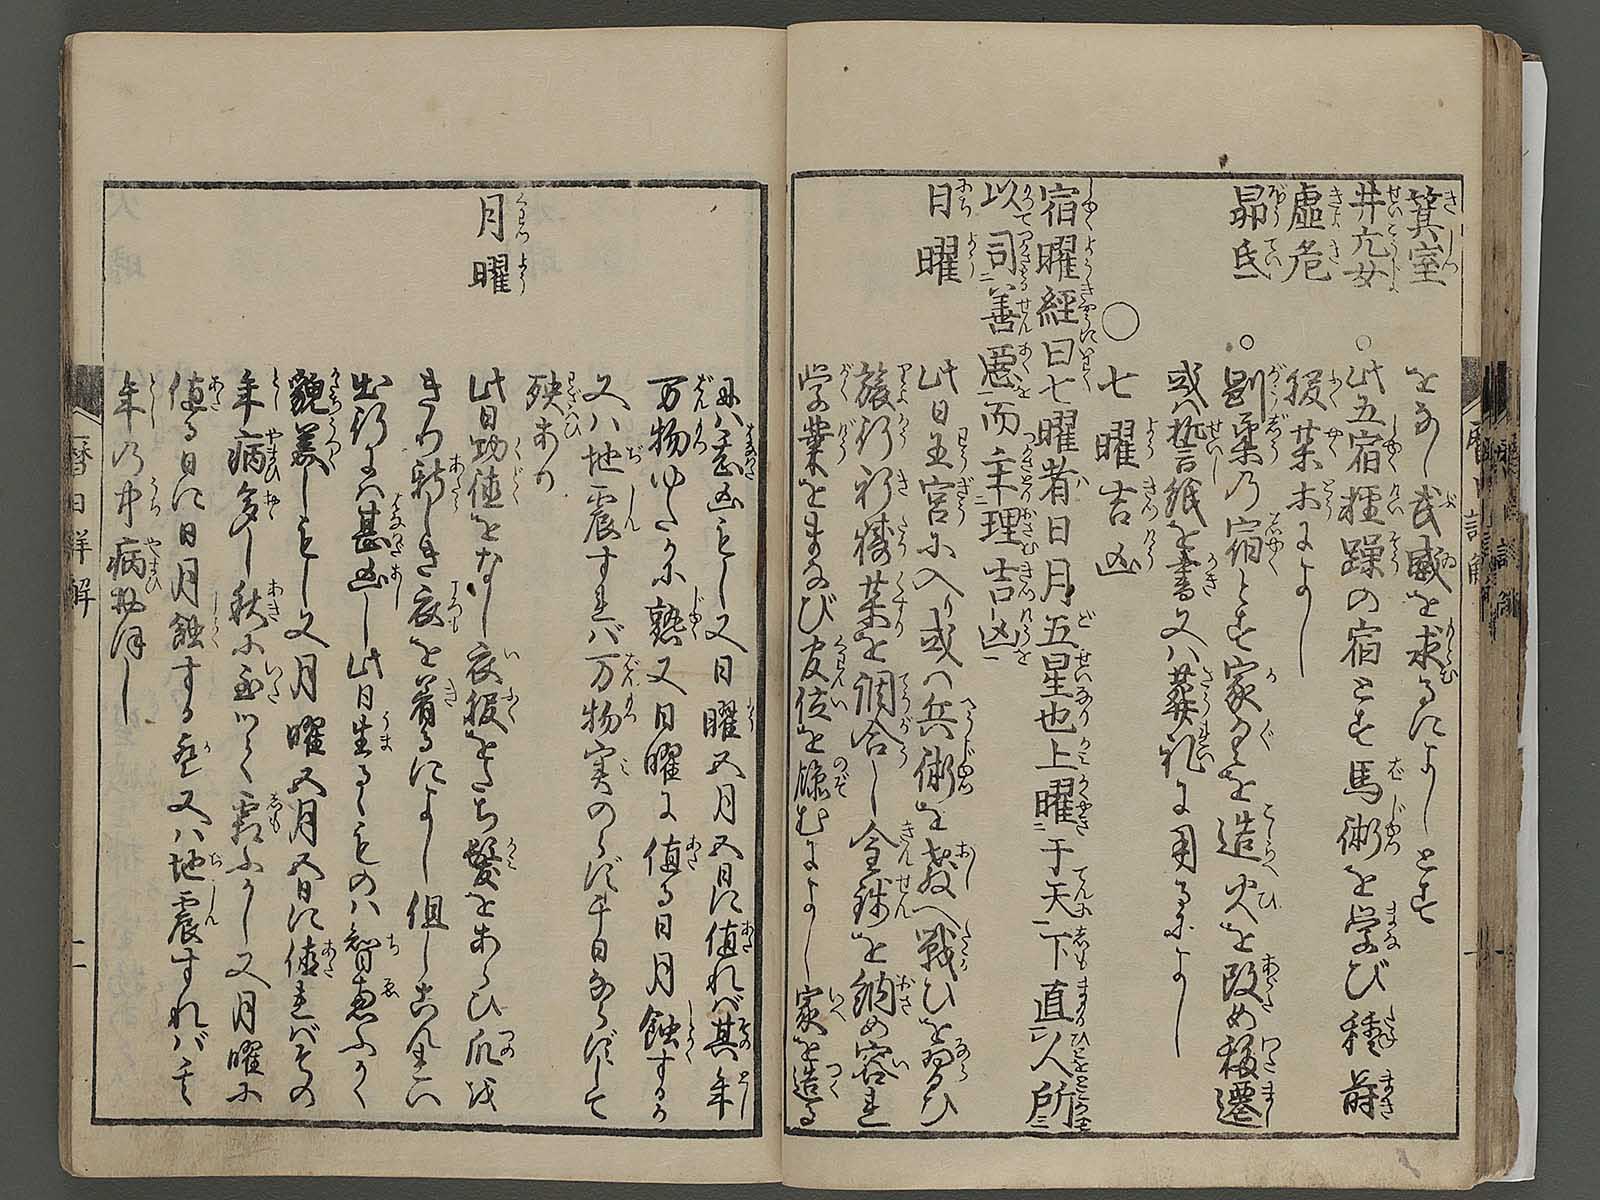 箕室
をなし武威を求るによしとす
井亢女
○此五宿軽躁の宿とす馬術を学び種蒔
虚危
服薬木によし
昴氐
○剛柔の宿とす家具を造火を改め移遷
或ハ誓紙を書又ハ葬礼に用るによし
○七曜吉凶
宿曜經曰七曜者日月五星也上曜于天下直人所
以司善悪而主理吉凶
日曜
此日王宮に入り或ハ兵術を教へ戦ひを習ひ
旅行祈祷薬を調合し金銭を納め容る
学業をまなび官位を望むによし家を造る
には甚凶し又日曜五月五日に値れバ其年
万物ゆたかに熟又日曜に値る日月蝕するか
又ハ地震すれバ万物実のらず千日ならずして
殃あり
月曜
此日功徳をなし衣服をたち髪をあらひ爪を
きり新しき衣を着るによし但し
出行にハ甚凶し此日生るゝものハ智恵ふかく
貌美しし又月曜五月五日に値れバその
年病多し秋に至りて霜ふかし又月曜に
値る日に日月蝕するか又ハ地震すれバ其
年の中病
暦日詳解
二